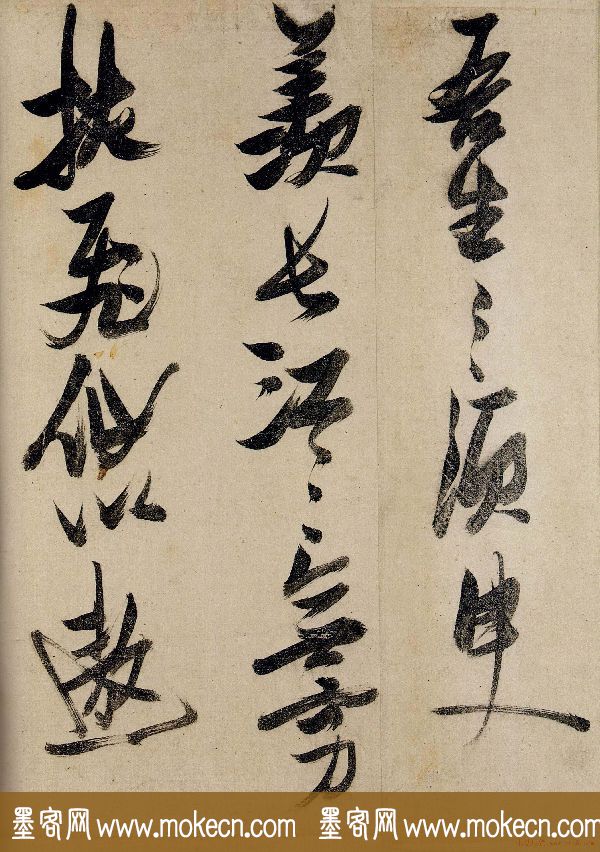 吾生之須臾
羨長江之無窮
挾飛仙以遨
墨客网 www.mokecn.com 墨客网 www.mokecn.com